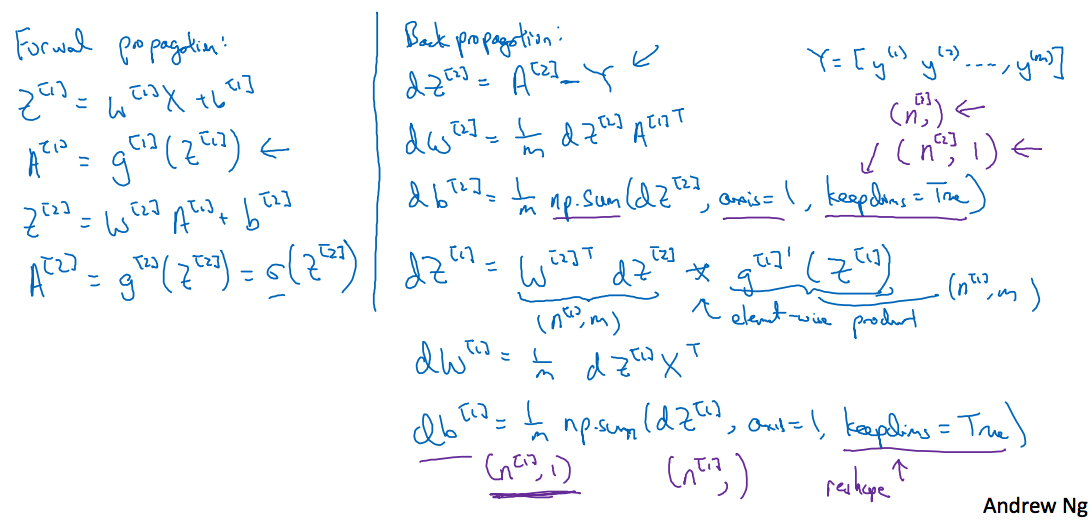 Forwal propagation:
Z^[1] = W^[1]X + b^[1]
A^[1] = g^[1](Z^[1]) ←
Z^[2] = W^[2] A^[1] + b^[2]
A^[2] = g^[2](Z^[2]) = σ(Z^[2])
Back propagation:
dZ^[2] = A^[2] - Y ↙
dW^[2] = 1/m dZ^[2] A^[1]T
db^[2] = 1/m np.sum(dZ^[2], axis=1, keepdims=True)
dZ^[1] = W^[2]T dZ^[2] * g^[1]'(Z^[1])
(n^[1], m) ↖ element-wise product (n^[1], m)
dW^[1] = 1/m dZ^[1] X^T
db^[1] = 1/m np.sum(dZ^[1], axis=1, keepdims=True)
(n^[1], 1) (n^[1],) reshape ↑
Y = [y^(1) y^(2) ...., y^(m)]
(n^[2],) ←
↙ (n^[2], 1) ←
Andrew Ng